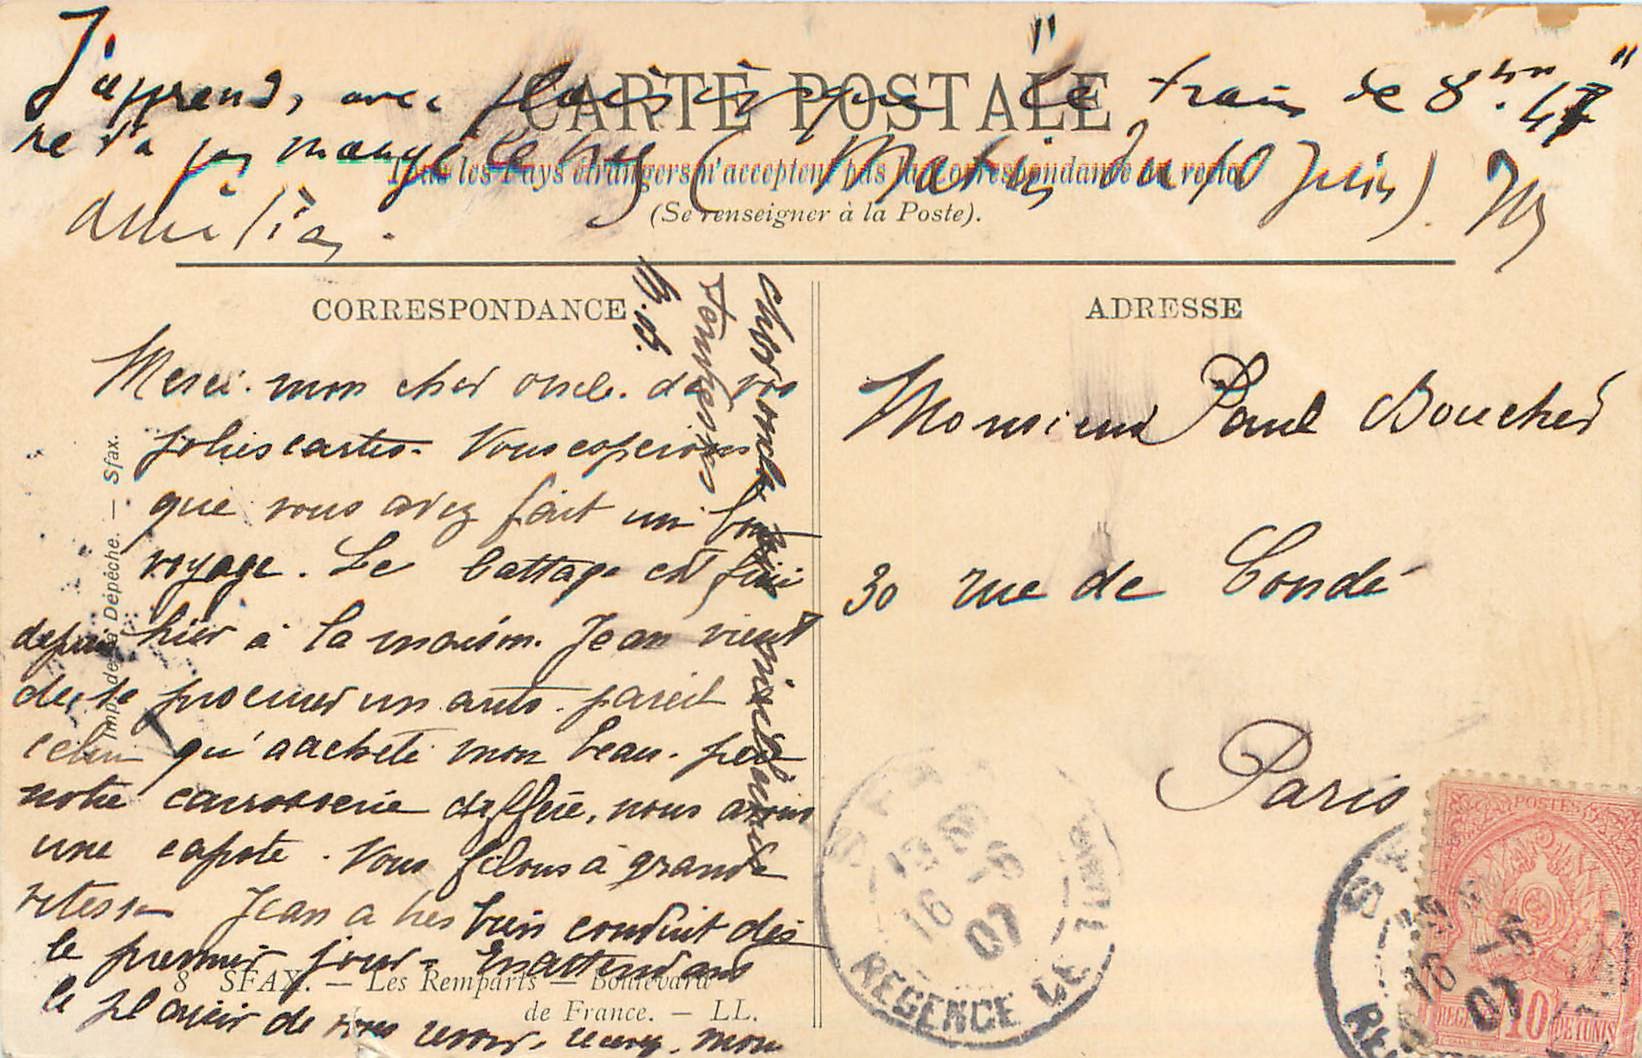 J'apprend, avec plaisir que "le train de 8 hrs 47"
ne t'a pas mangé le nez (Matin du 10 Juin).
CARTE POSTALE
Tous les Pays étrangers n'acceptent pas la Correspondance au recto
(Se renseigner à la Poste).
CORRESPONDANCE
Merci mon cher oncle de vos
jolies cartes. Nous espérons
que vous avez fait un bon
voyage. Le battage est fini
depuis hier à la maison. Jean vient
de se procurer un auto pareil
celui qu'a acheté mon beau-père
notre carrosserie diffère, nous avons
une capote. Nous filons à grande
vitesse Jean a très bien conduit dès
le premier jour. En attendant
le plaisir de vous revoir, recevez, mon
cher oncle
tendresses
Imp. de la Dépêche. — Sfax.
8 SFAX. — Les Remparts — Boulevard
de France. — LL.
ADRESSE
Monsieur Paul Boucher
30 rue de Condé
Paris
SFAX
16 -6
07
REGENCE DE TUNIS
POSTES
10
REGENCE DE TUNIS
SFAX
16 -6
07